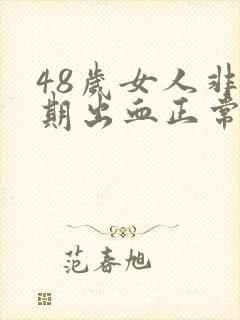 48歲女人非
期出血正常
范春旭